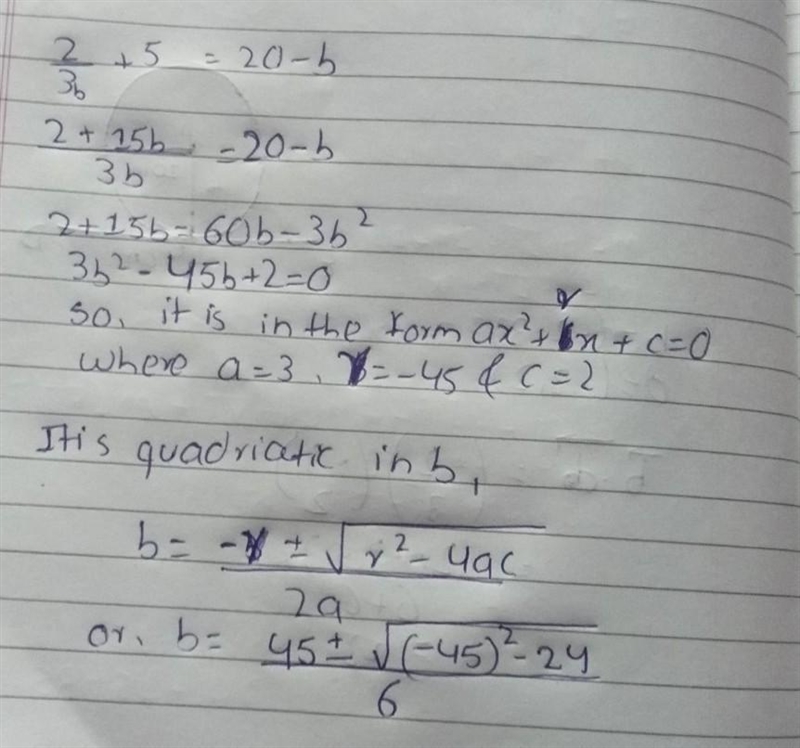 2/3b + 5 = 20 - b
(2 + 15b)/3b = 20 - b
2 + 15b = 60b - 3b²
3b² - 45b + 2 = 0
So, it is in the form ax² + rx + c = 0
where a = 3, r = -45 & c = 2
It is quadriatic in b,
b = (-r ± √(r² - 4ac))/2a
or, b = (45 ± √((-45)² - 24))/6